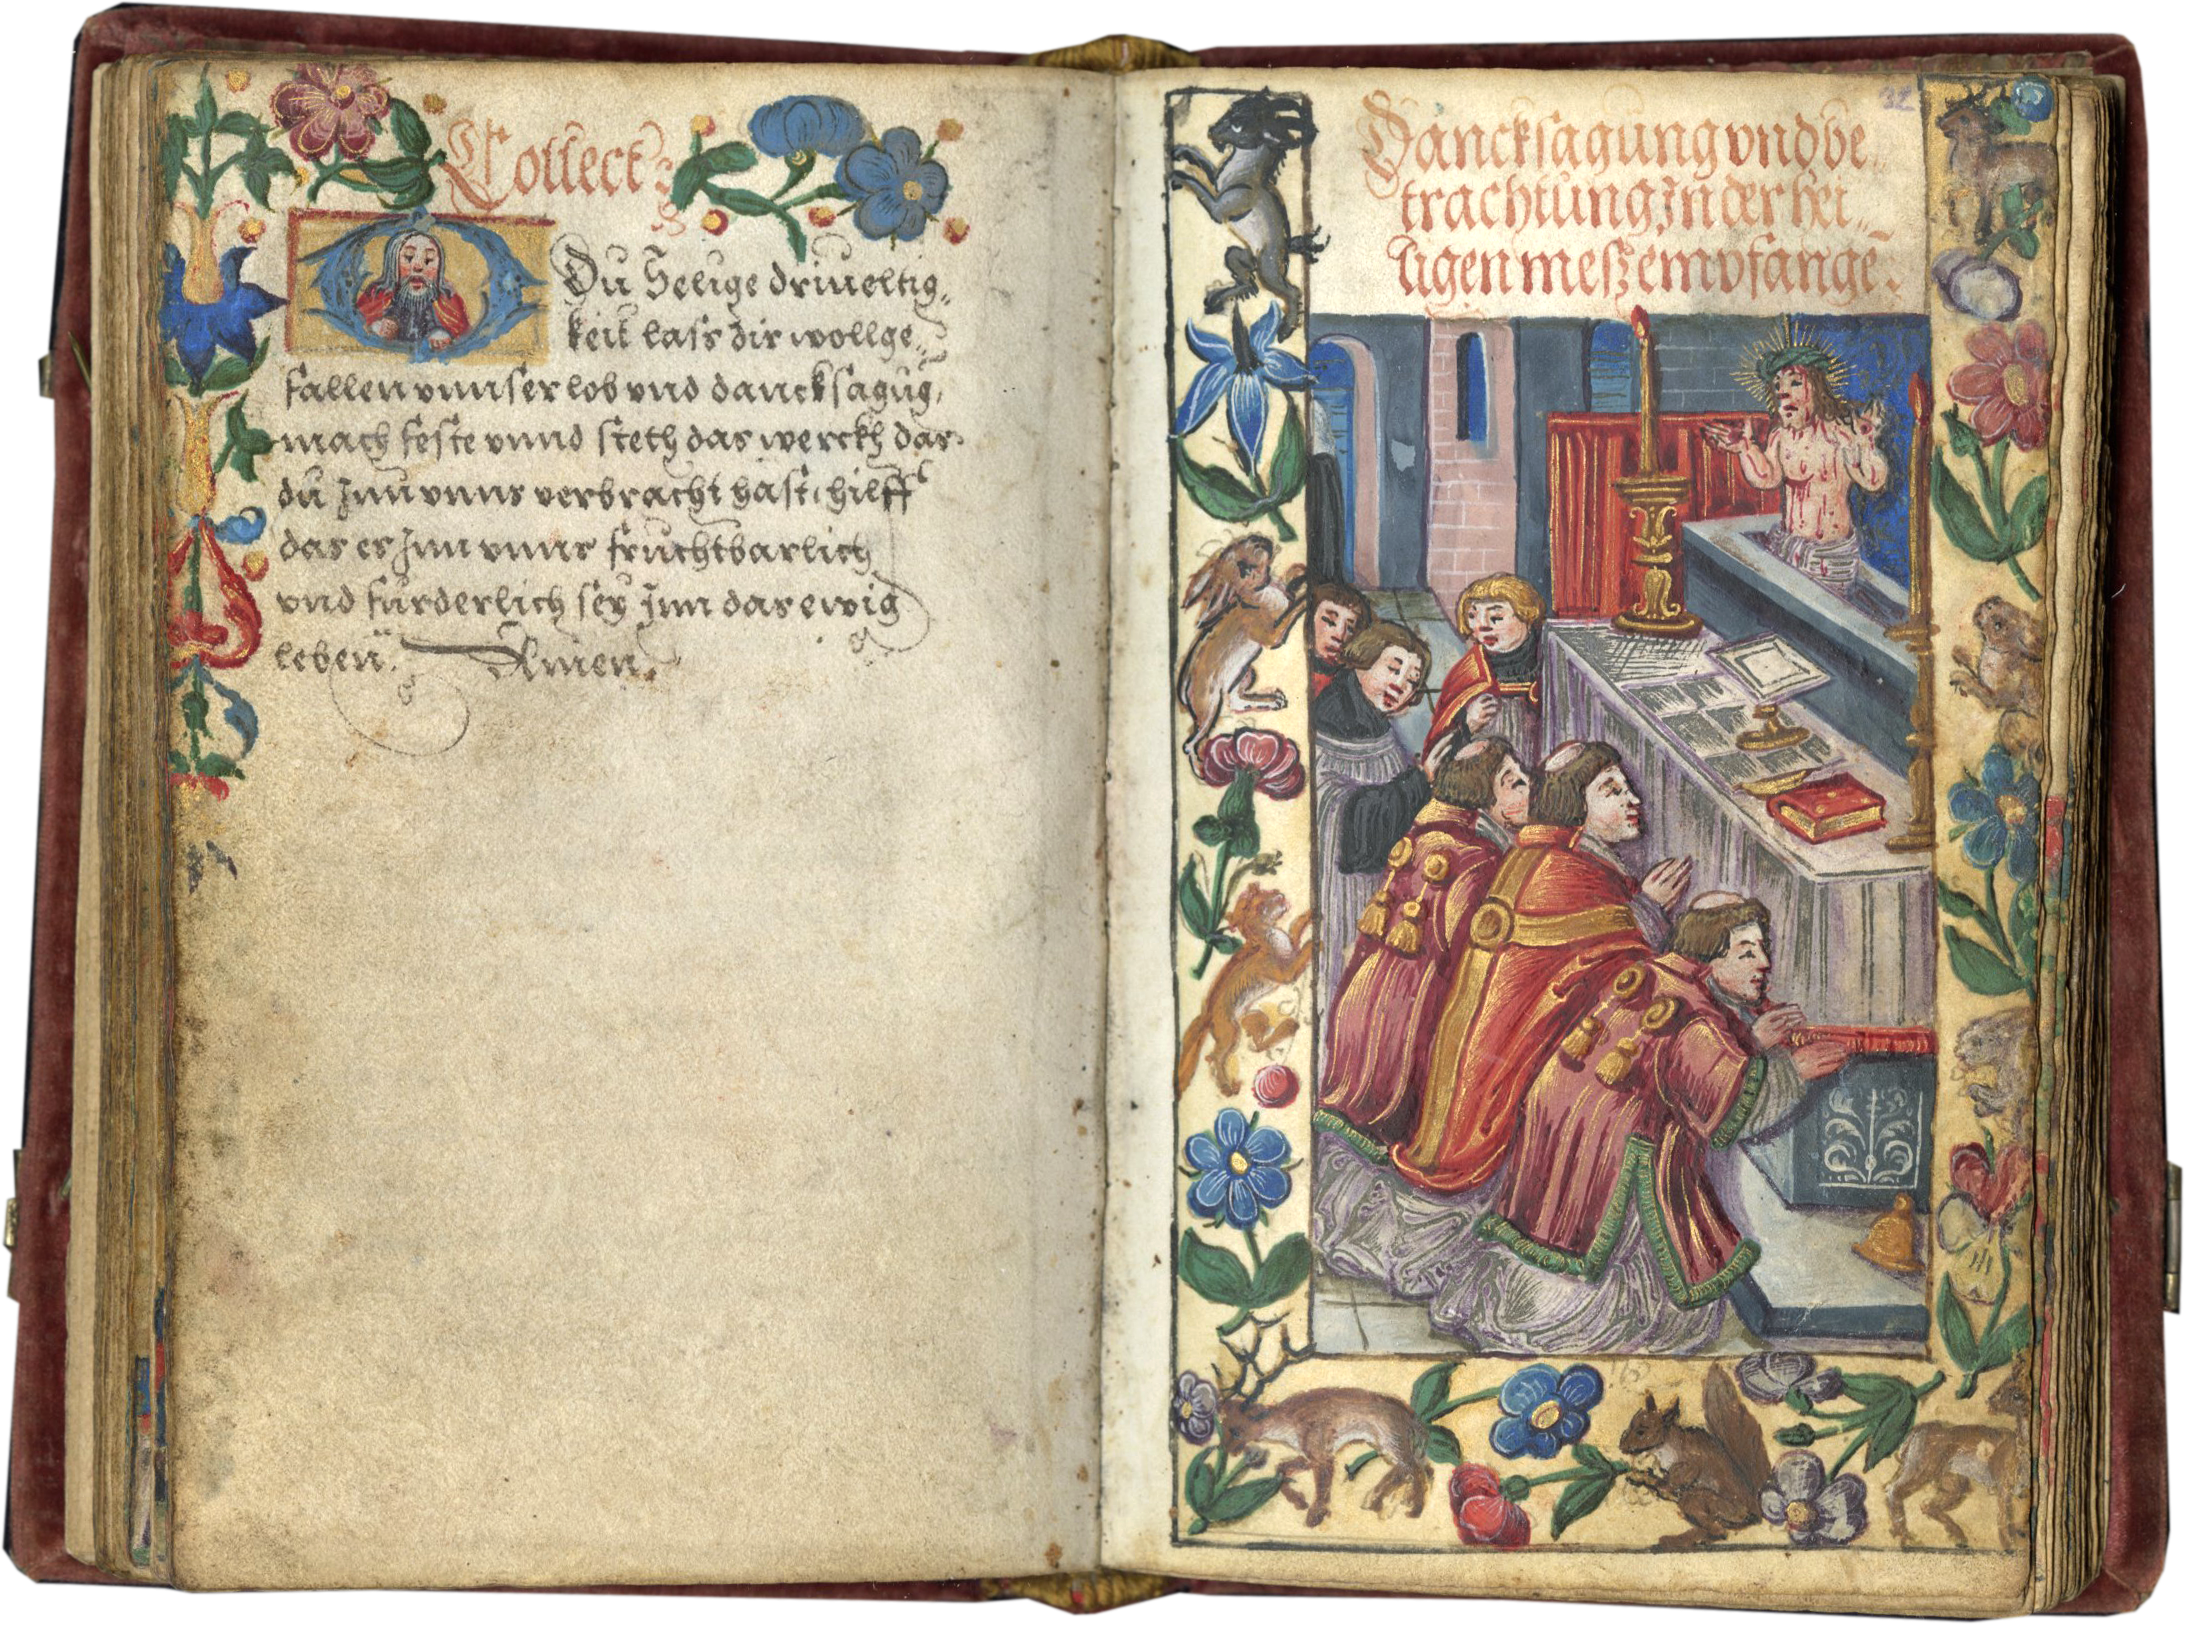 Collect :
O Du Heilige driueltig„
keit lass dir wollge„
fallen vnnser lob vnd dancksagūg,
mach feste vnnd steth das werckh das
dü Jnn vnns verbracht hast, hilff
das es Jnn vnns fruchtbarlich
vnd fürderlich sey Jnn das ewig
leben. Amen.
32
Dancksagung vnd be„
trachtung Jn der hei„
ligen mesz empfange.